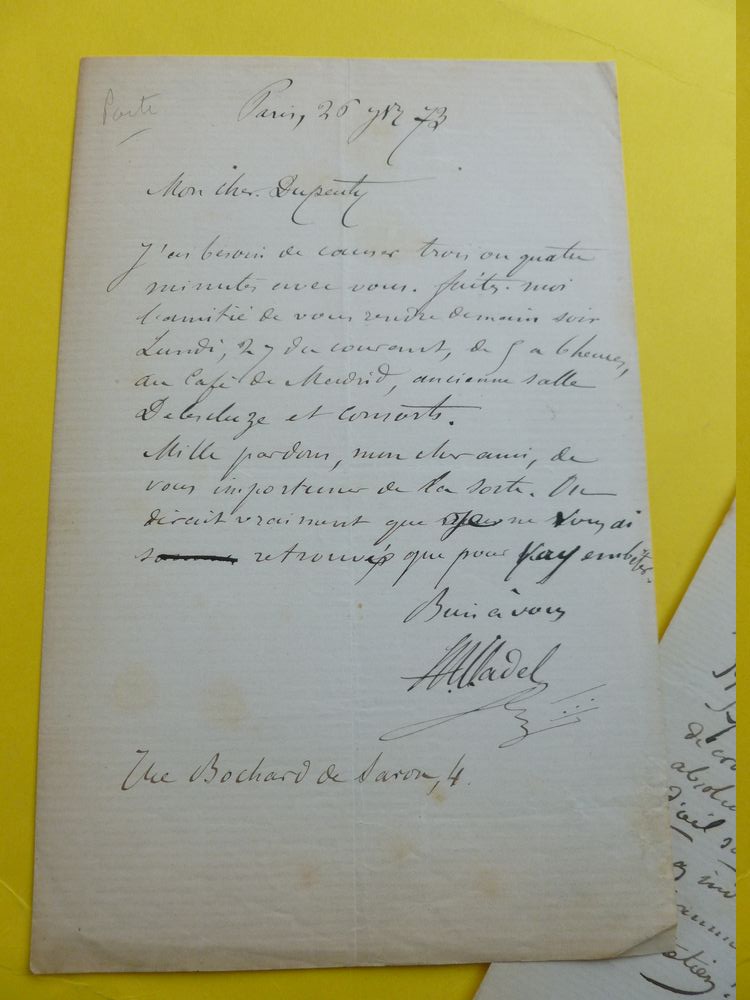 Poste
Paris, 26 72
Mon cher Dupeuty
J'ai besoin de causer trois ou quatre
minutes avec vous. faites-moi
l'amitié de vous rendre demain soir
Lundi, 27 du courant, de 5 a 6 heures,
au Café de Madrid, ancienne salle
Delescluze et consorts.
Mille pardons, mon cher ami, de
vous importuner de la sorte. On
dirait vraiment que je ne vous ai
retrouvé que pour
Bien à vous
Cladel
Rue Bochard de Saron, 4.
abs
d'œil